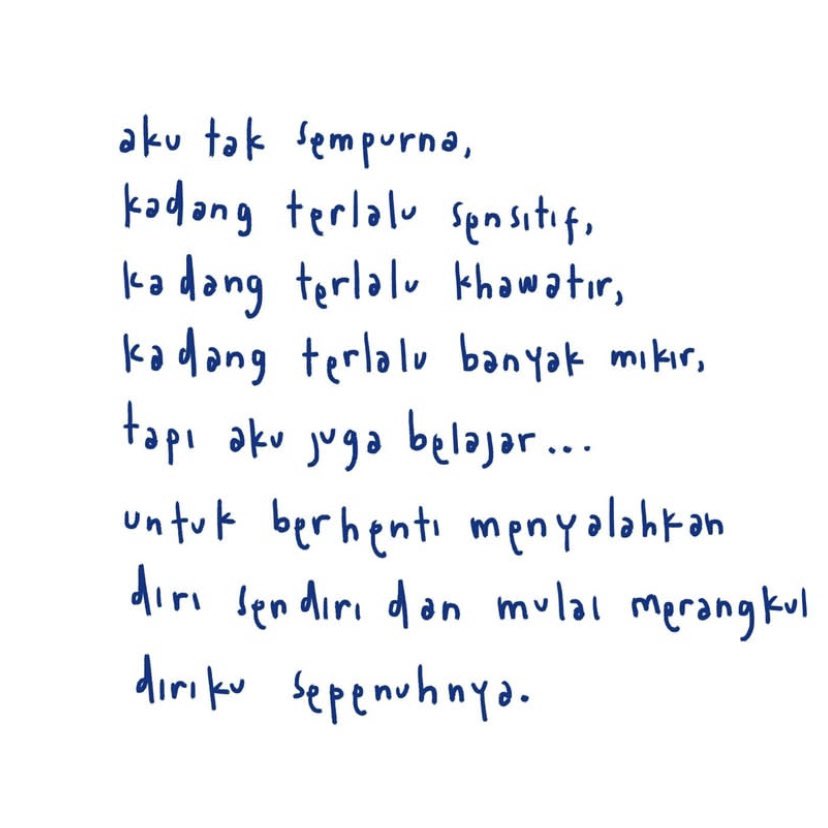 aku tak sempurna,
kadang terlalu sensitif,
kadang terlalu khawatir,
kadang terlalu banyak mikir,
tapi aku juga belajar...
untuk berhenti menyalahkan
diri sendiri dan mulai merangkul
diriku sepenuhnya.